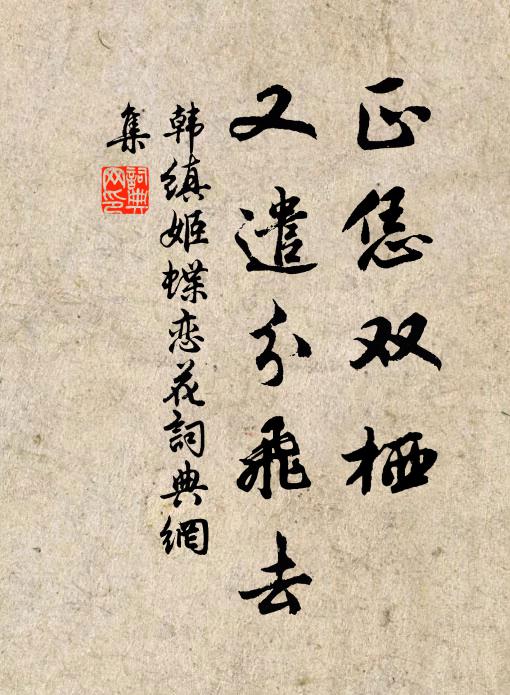 正恁双栖
又遣分飞去
韩缜姬蝶恋花詞典網
集
詞典
网印